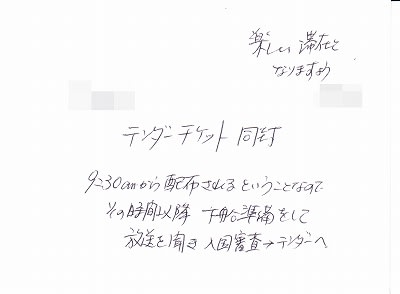 楽しい 滞在と
なりますよう
テンダーチケット 同封
9:30amから配布されるということなので
その時間以降 下船準備をして
放送を聞き 入国審査→テンダーへ